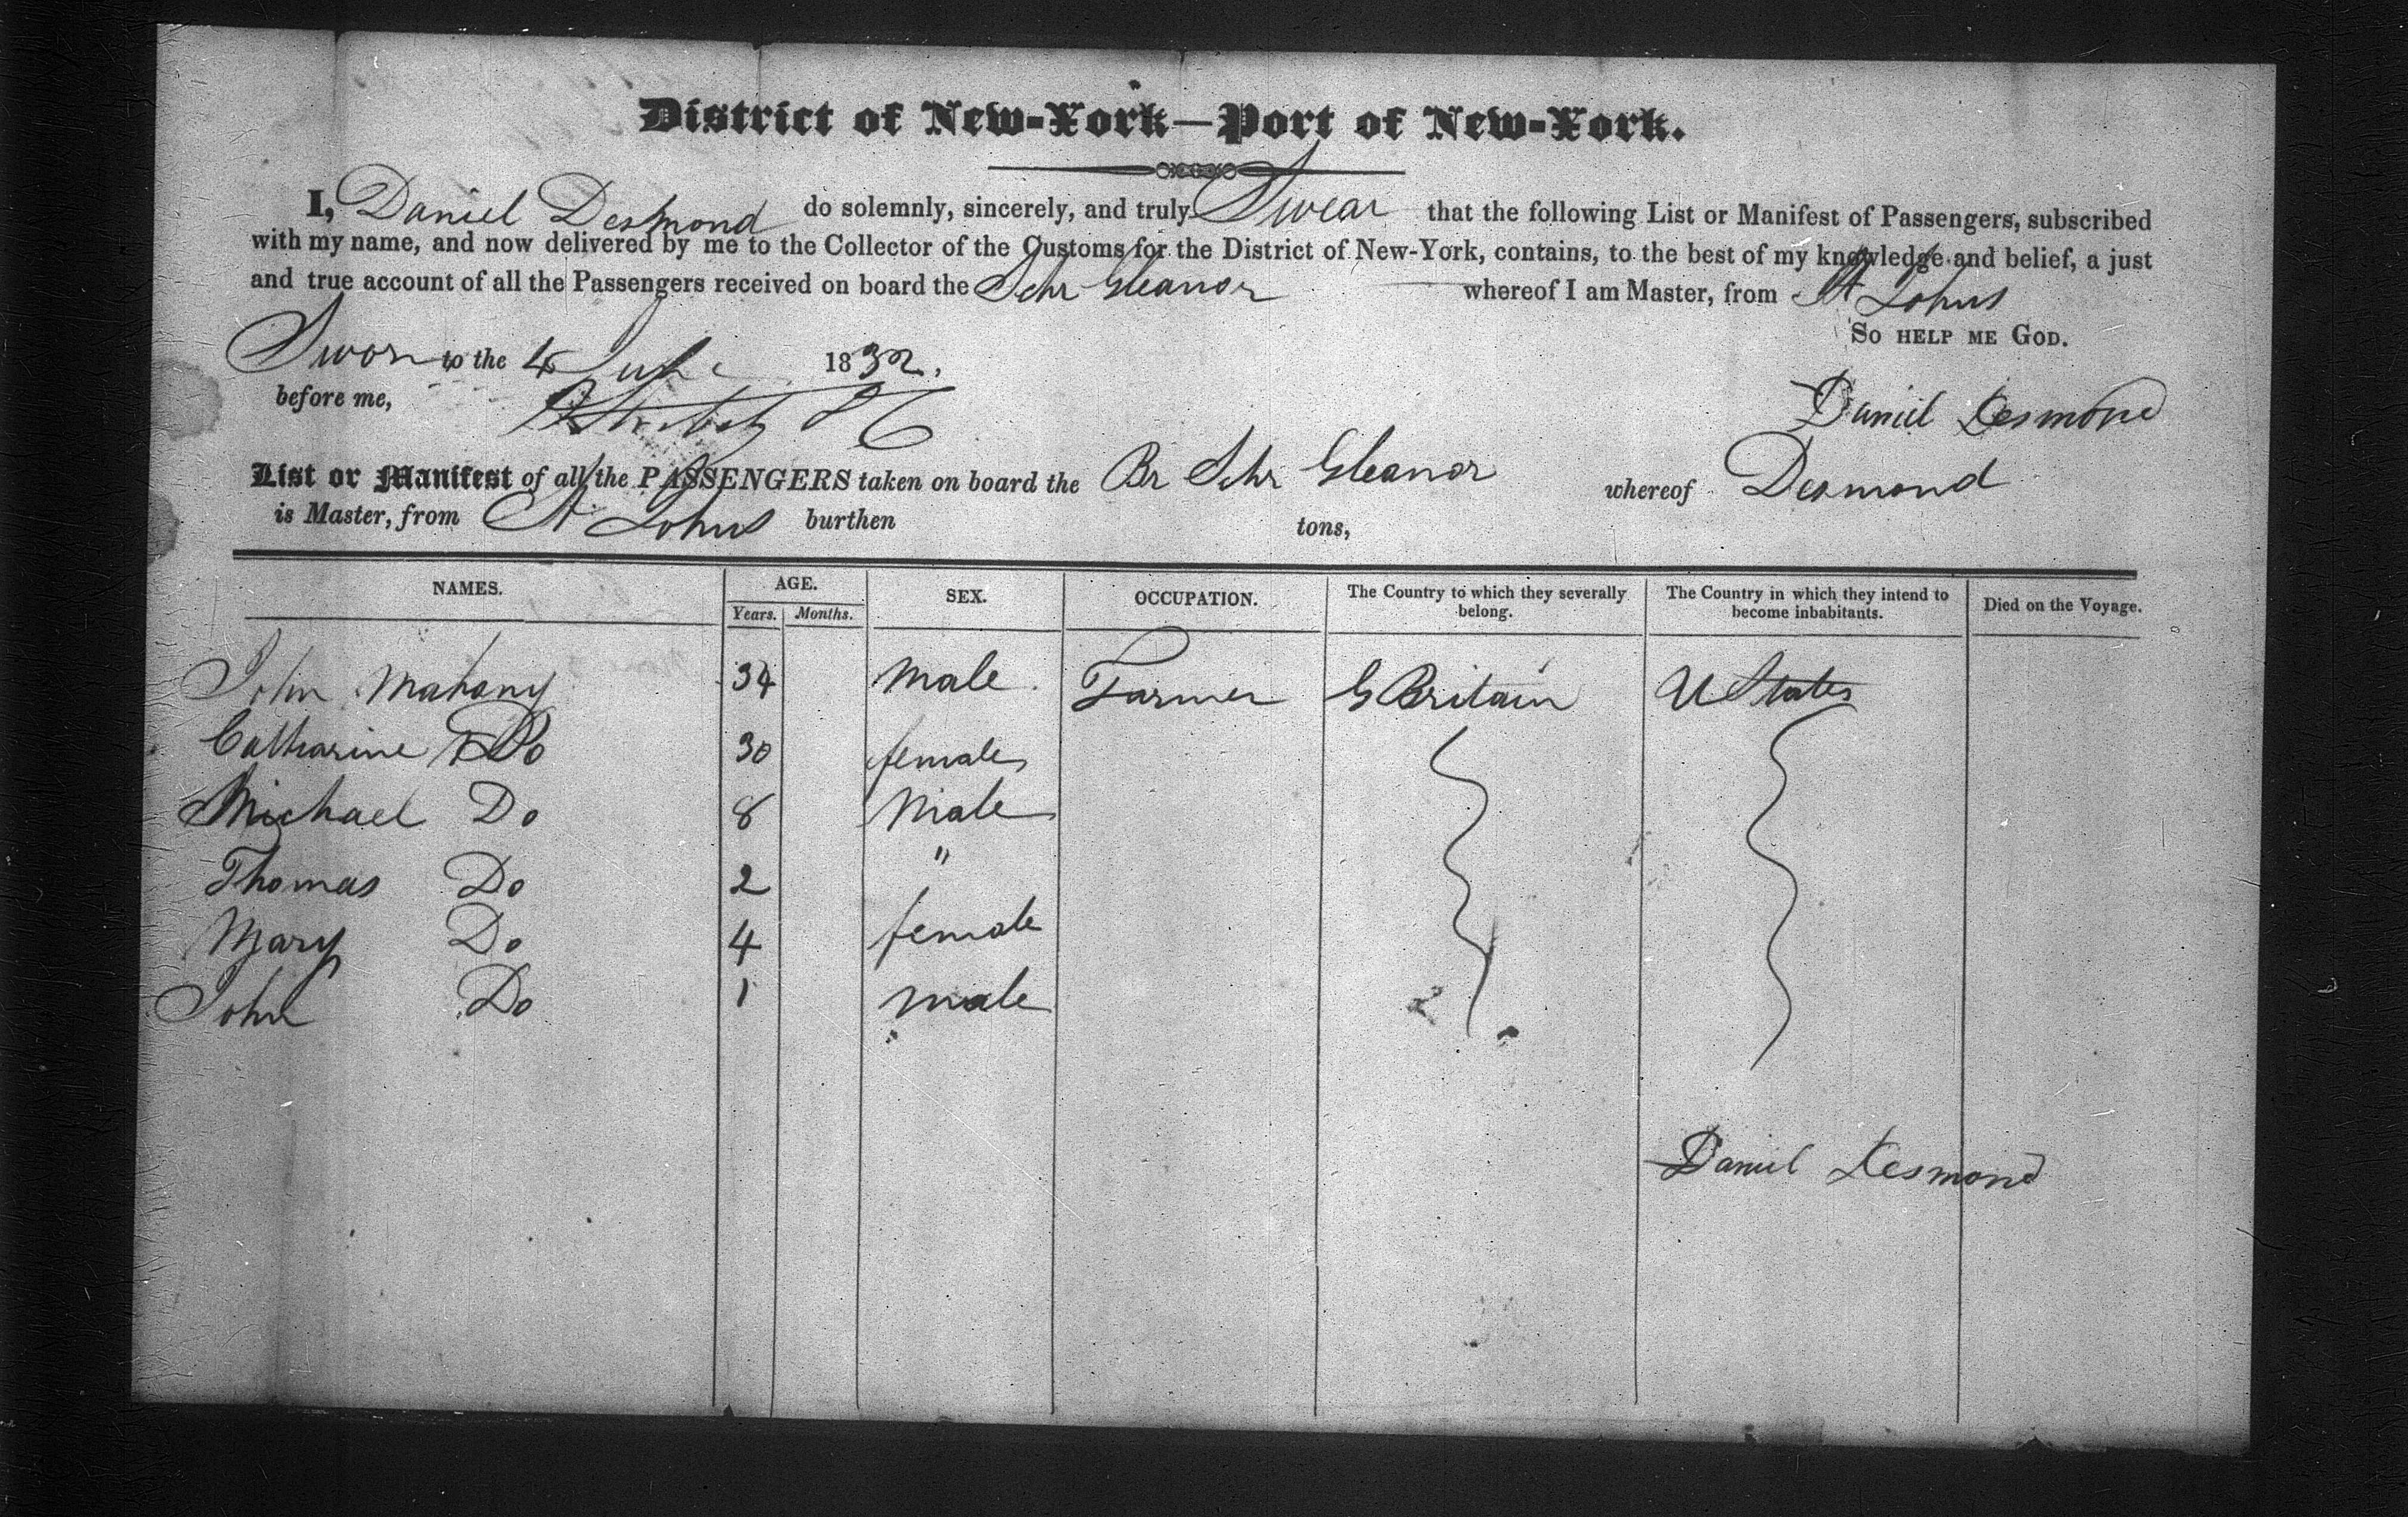 District of New-York—Port of New-York.
I, Daniel Desmond do solemnly, sincerely, and truly Swear that the following List or Manifest of Passengers, subscribed
with my name, and now delivered by me to the Collector of the Customs for the District of New-York, contains, to the best of my knowledge and belief, a just
and true account of all the Passengers received on board the Schr Gleanor whereof I am Master, from St Johns
So help me God.
Sworn to the 4 June 1832.
before me,
Daniel Desmond
List or Manifest of all the PASSENGERS taken on board the Br Schr Gleanor whereof Desmond
is Master, from St Johns burthen tons,
NAMES. AGE. SEX. OCCUPATION. The Country to which they severally belong. The Country in which they intend to become inhabitants. Died on the Voyage.
Years. Months.
John Mahony 34 Male Farmer G Britain U States
Catharine Do 30 female
Michael Do 8 Male
Thomas Do 2 "
Mary Do 4 female
John Do 1 male
Daniel Desmond